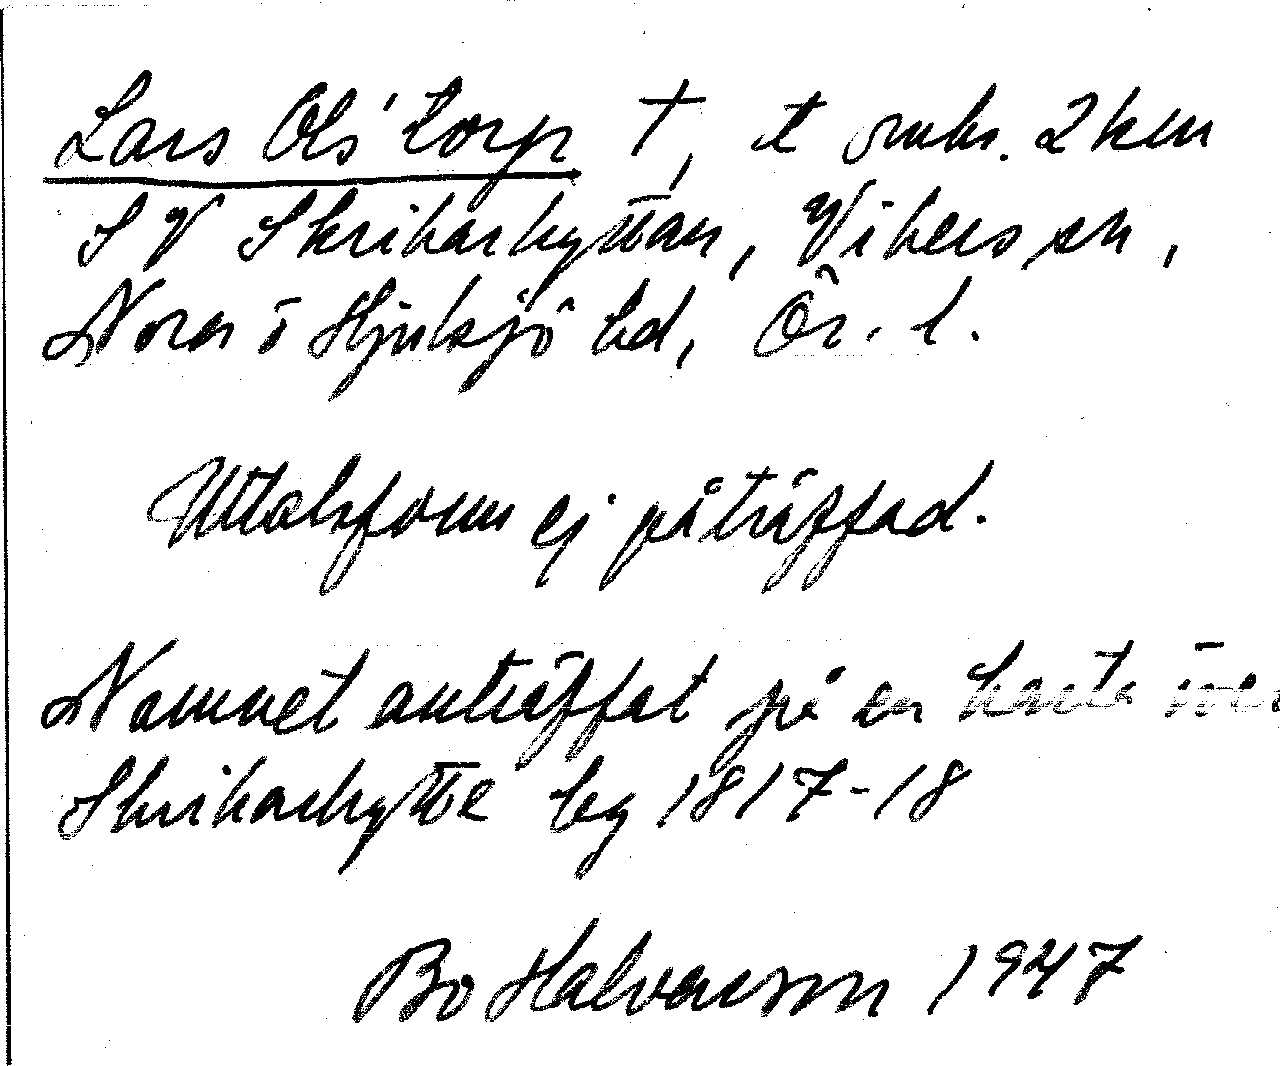 Lars Ols' torp †, t omkr. 2 km
SV Skrikarhyttan, Vikers sn,
Nora o Hjulsjö bd, Ör. l.
Uttalsform ej påträffad.
Namnet anträffat på en karta över
Skrikarhytte by 1817-18
Bo Halvarson 1947